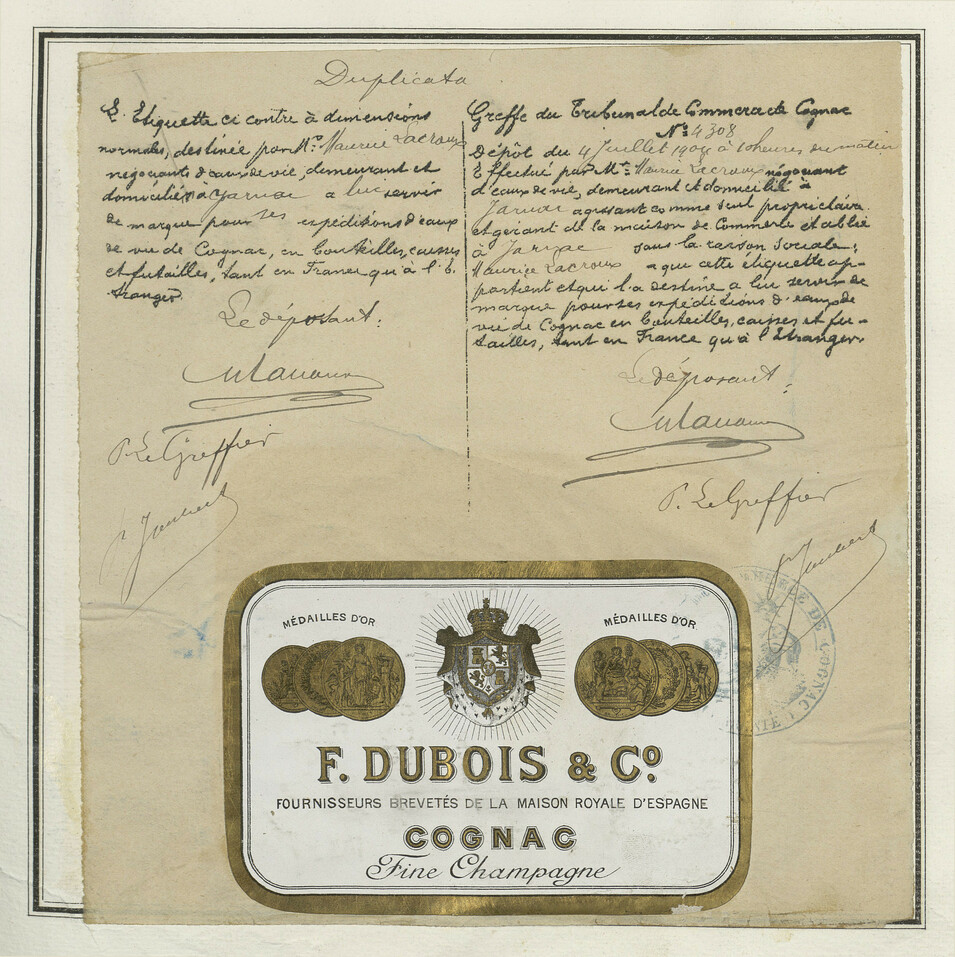 Duplicata
L'Etiquette ci contre à dimensions
normales, destinée par Mr. Maurice Lacroux
négociants d'eaux de vie, demeurant et
domiciliés à Jarnac a lui servir
de marque pour ses expéditions d'eaux
de vie de Cognac, en bouteilles, caisses
et futailles, tant en France qu'à l'é-
tranger.
Le déposant:
P. Le Greffier
Greffe du Tribunal de Commerce de Cognac
No 4308
Dépôt du 4 Juillet à 10 heures du matin
Effectué par Mr. Maurice Lacroux négociant
d'eaux de vie, demeurant et domicilié à
Jarnac agissant comme seul propriétaire
et gérant de la maison de Commerce établie
à Jarnac sous la raison Sociale:
Maurice Lacroux que cette étiquette ap-
partient et qu'il a destiné a lui servir de
marque pour ses expéditions d'eaux de
vie de Cognac en bouteilles, caisses et fu-
tailles, tant en France qu'à l'Etranger.
Le déposant:
P. Le Greffier
MÉDAILLES D'OR
MÉDAILLES D'OR
F. DUBOIS & Co.
FOURNISSEURS BREVETÉS DE LA MAISON ROYALE D'ESPAGNE
COGNAC
Fine Champagne
DE COGNAC